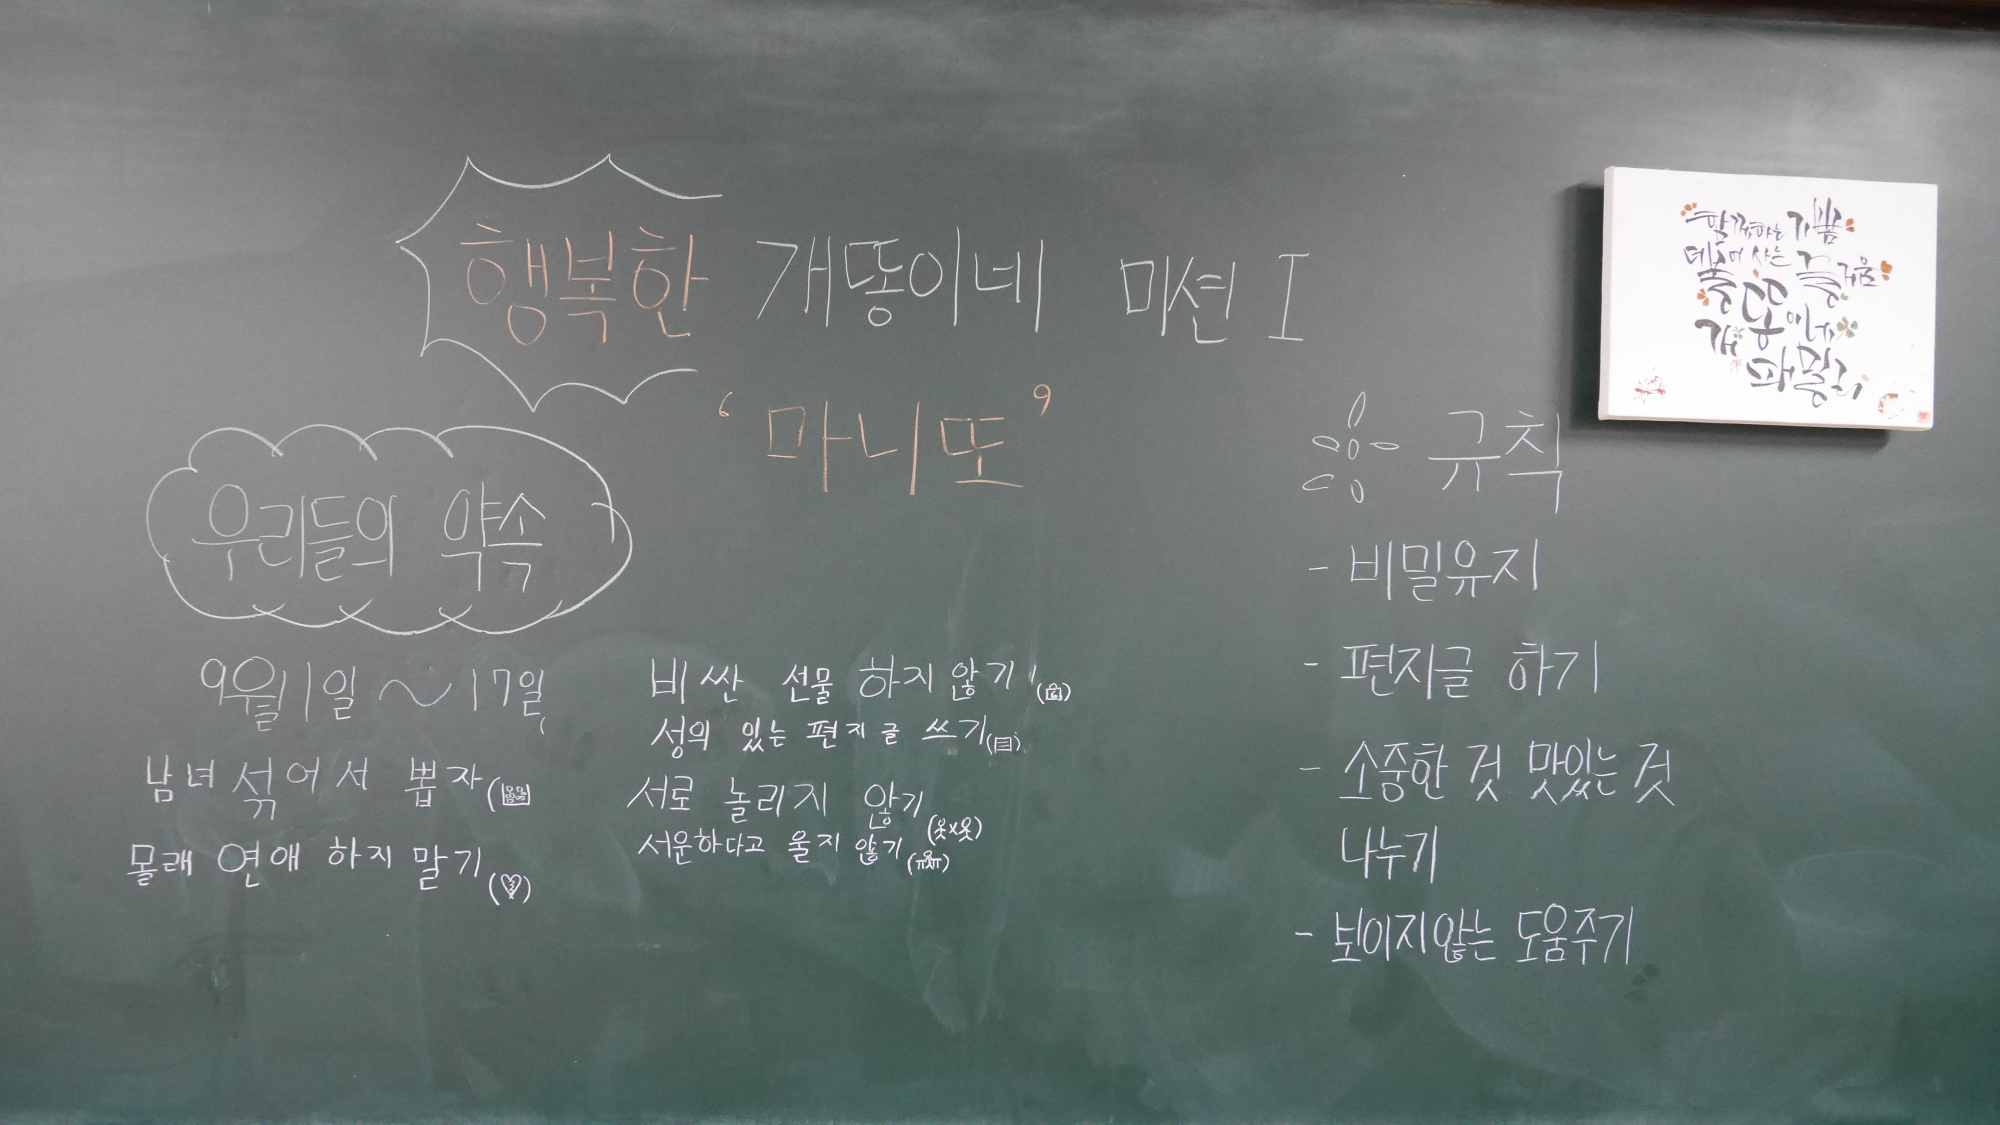 행복한 개똥이네 미션 I
‘마니또’
우리들의 약속
9월 1일 ~ 17일
남녀 섞어서 뽑자
몰래 연애 하지 말기
비싼 선물 하지 않기!
성의 있는 편지글 쓰기
서로 놀리지 않기
서운하다고 울지 않기
규칙
- 비밀유지
- 편지글 하기
- 소중한 것 맛있는 것
나누기
- 보이지않는 도움주기
함께하는 기쁨
더불어 사는 즐거움
개똥이네
패밀리